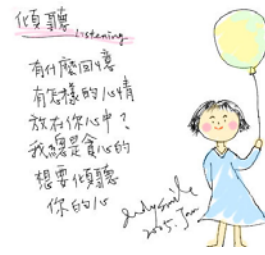 傾聽 Listening
有什麼回憶
有怎樣的心情
放在你心中？
我總是貪心的
想要傾聽
你的心
2005. Jan